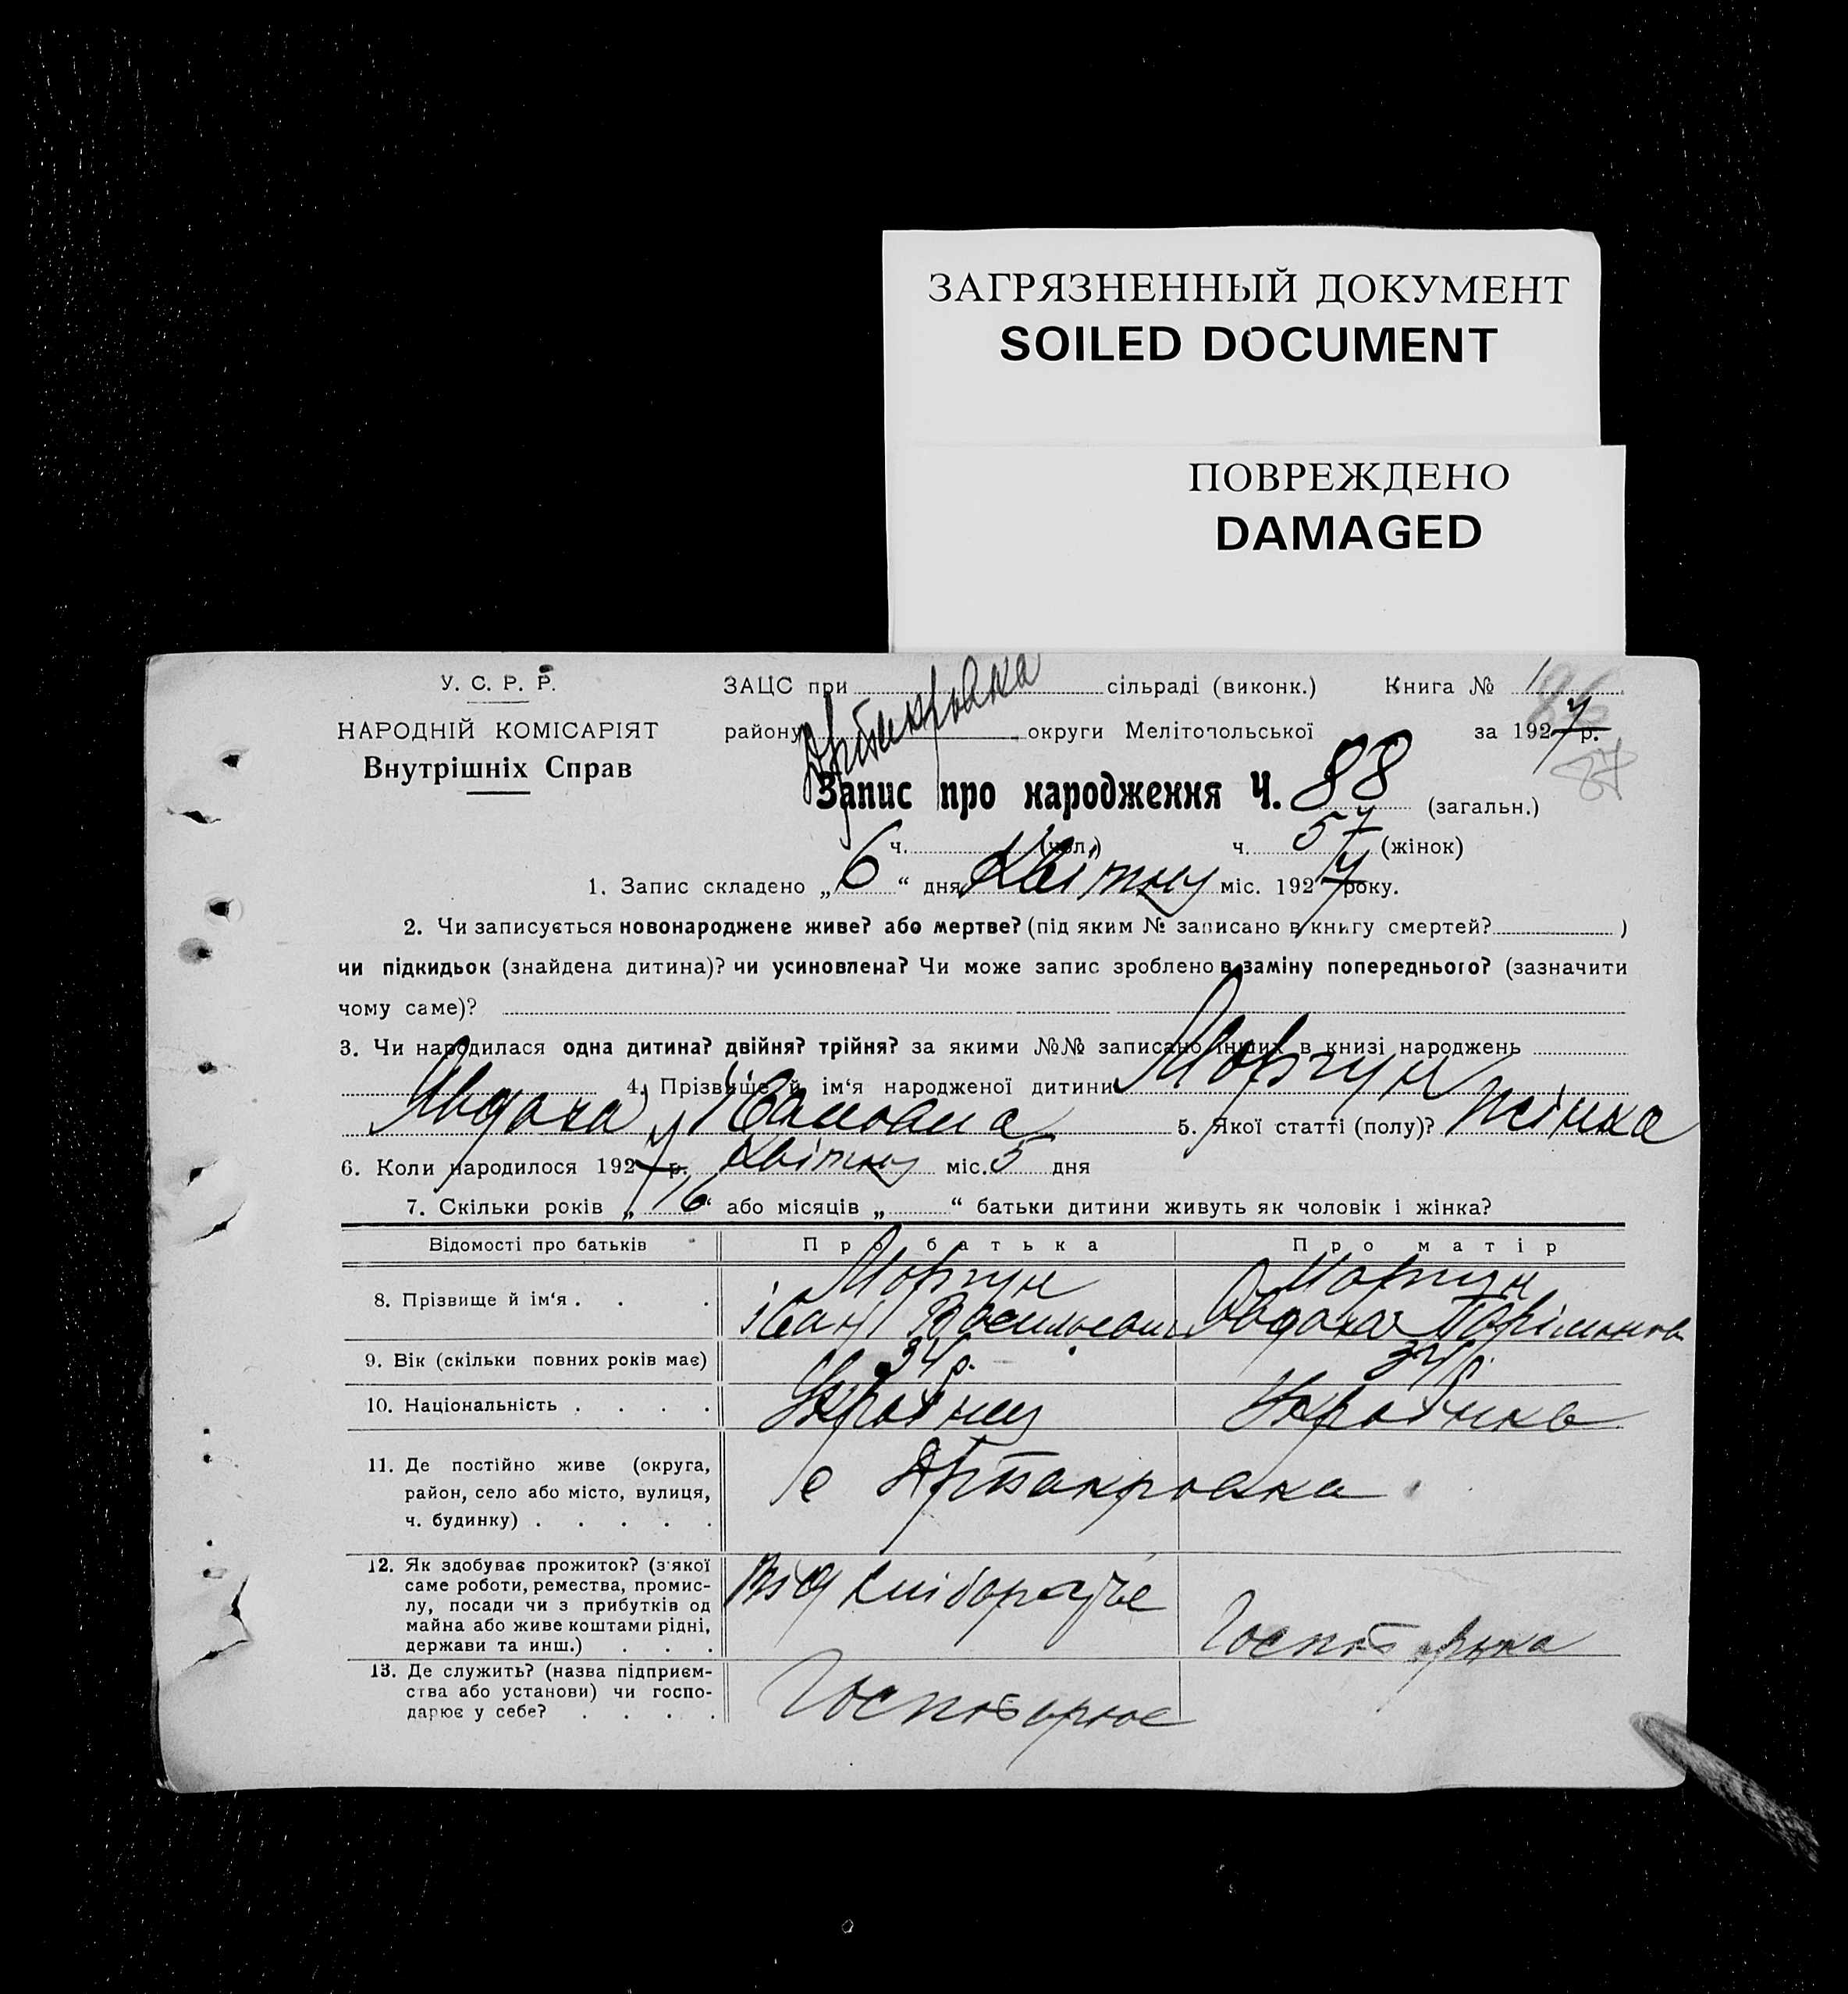 ЗАГРЯЗНЕННЫЙ ДОКУМЕНТ
SOILED DOCUMENT
ПОВРЕЖДЕНО
DAMAGED
У. С. Р. Р. ЗАЦС при сільраді (виконк.) Книга № 1
НАРОДНІЙ КОМІСАРІЯТ району округи Мелітопольської за 1927 р.
Внутрішніх Справ
87
Запис про народження Ч. 88 (загальн.)
ч. (чол.) ч. 57 (жінок)
1. Запис складено „ 6 “ дня Квітня міс. 1927 року.
2. Чи записується новонароджене живе? або мертве? (під яким № записано в книгу смертей? )
чи підкидьок (знайдена дитина)? чи усиновлена? Чи може запис зроблено в заміну попереднього? (зазначити
чому саме)?
3. Чи народилася одна дитина? двійня? трійня? за якими №№ записано інших в книзі народжень
4. Прізвище й ім‘я народженої дитини Моргун
Явдоха Івановна 5. Якої статті (полу)? жінка
6. Коли народилося 1927 р. Квітня міс. 5 дня
7. Скільки років „ 16 “ або місяців „ “ батьки дитини живуть як чоловік і жінка?
Відомості про батьків Про батька Про матір
8. Прізвище й ім‘я . . . Моргун Моргун
Іван
9. Вік (скільки повних років має) 34 р. 34 р.
10. Національність . . . . Українец Українка
11. Де постійно живе (округа,
район, село або місто, вулиця,
ч. будинку) . . . . . с
12. Як здобуває прожиток? (з'якої
саме роботи, ремества, промис-
лу, посади чи з прибутків од
майна або живе коштами рідні,
держави та инш.) . . .
Від
13. Де служить? (назва підприєм-
ства або установи) чи госпо-
дарює у себе? . . . .